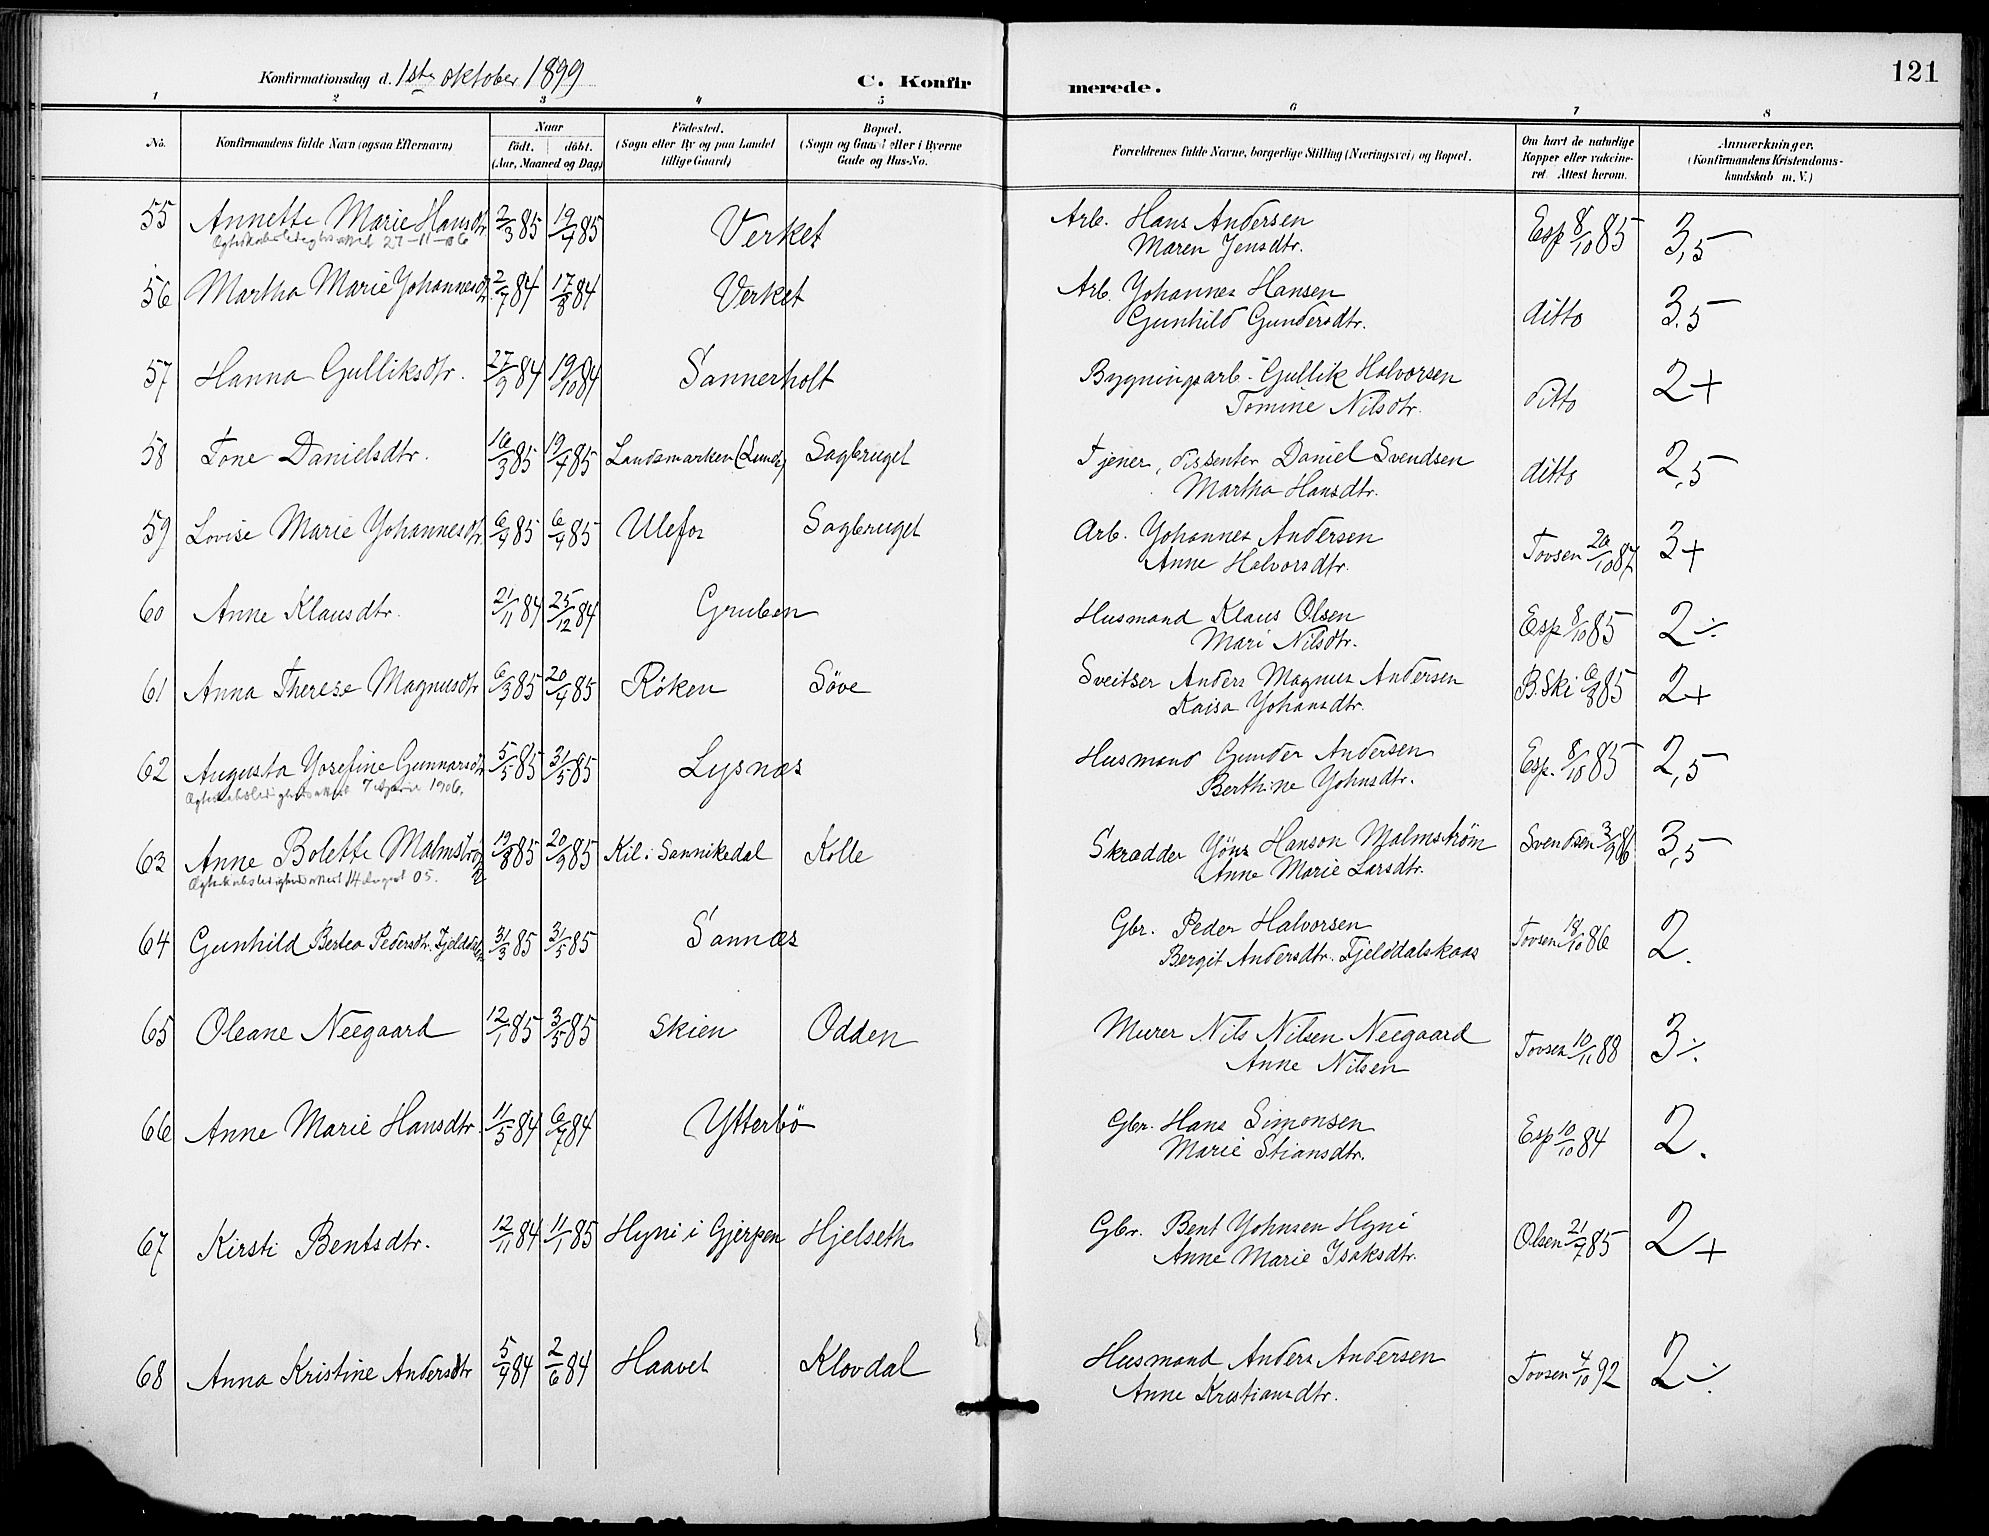 121
Konfirmationsdag d. 1ste oktober 1899
C. Konfir merede.
1 2 3 4 5 6 7 8
No.
Konfirmandens fulde Navn (ogsaa Efternavn)
Naar
født. døbt.
(Aar, Maaned og Dag)
Fødested.
(Sogn eller By og paa Landet
tillige Gaard)
Bopæl.
(Sogn og Gaard eller i Byerne
Gade og Hus-No.
Forældrenes fulde Navne, borgerlige Stilling (Næringsvei) og Bopæl.
Om havt de naturlige
Kopper eller vaccine-
ret. Attest herom.
Anmærkninger.
(Konfirmandens Kristendoms-
kundskab m. V.)
55 Annette Marie Hansdtr 2/3 85 19/4 85 Verket Arb. Hans Andersen Esp 8/10 85 3,5
27-11-06 Maren Jensdtr.
56 Martha Marie Yohannesdtr. 2/7 84 17/8 84 Verket Arb. Yohannes Hansen ditto 3.5
Gunhild Gundersdtr.
57 Hanna Gulliksdtr. 27/9 84 19/10 84 Sannerholt Bygningsarb. Gullik Halvorsen ditto 2+
Tomine Nilsdtr.
58 Tone Danielsdtr. 16/3 85 19/4 85 Landsmarken (Lunde) Sagbruget Tjener, dissenter Daniel Svendsen ditto 2,5
Martha Hansdtr.
59 Lovise Marie Yohannesdtr. 6/4 85 6/4 85 Ulefos Sagbruget Arb. Yohannes Andersen Tovsen 26/10 87 3+
Anne Halvorsdtr.
60 Anne Klausdtr. 21/11 84 25/12 84 Gruben Husmand Klaus Olsen Esp 8/10 85 2÷
Mari Nilsdtr.
61 Anna Therese Magnusdtr 6/3 85 20/4 85 Røken Söve Sveitser Anders Magnus Andersen B.Ski 6/8 85 2+
Kaisa Yohansdtr.
62 Augusta Yosefine Gunnarsdtr 5/5 85 31/5 85 Lysnæs Husmand Gunder Andersen Esp. 8/10 85 2,5
1906. Berthine Yohnsdtr.
63 Anne Bolette Malmström 19/8 85 20/9 85 Kil i Sannikedal Kolle Skrædder Yöns Hanson Malmström Svendsen 3/9 86 3,5
14 August 05. Anne Marie Larsdtr.
64 Gunhild Bertea Pedersdtr. 31/3 85 31/5 85 Sannæs Gbr. Peder Halvorsen Tovsen 18/10 86 2.
Bergit Andersdtr. Fjelddalskaas
65 Oleane Neegaard 12/1 85 3/5 85 Skien Odden Murer Nils Nilsen Neegaard Tovsen 10/11 88 3÷
Anne Nilsen
66 Anne Marie Hansdtr. 11/5 84 6/7 84 Ytterbö Gbr. Hans Simonsen Esp 10/10 84 2.
Marie Stiansdtr.
67 Kirsti Bentsdtr. 12/11 84 11/1 85 Hyni i Gjerpen Hjelseth Gbr. Bent Yohnsen Hyni Olsen 21/7 85 2+
Anne Marie Isaksdtr.
68 Anna Kristine Andersdtr 5/4 84 2/6 84 Haavet Klovdal Husmand Anders Andersen Tovsen 4/10 92 2÷
Anne Kristiansdtr.